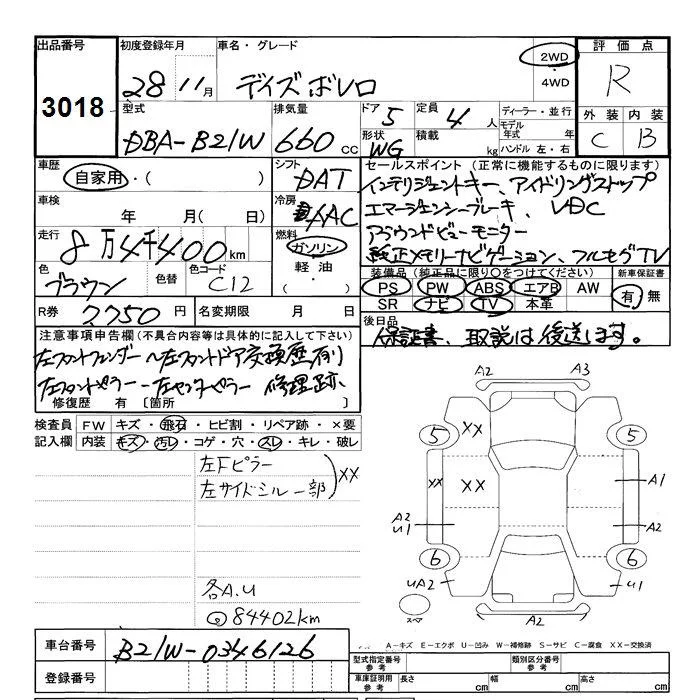 出品番号
3018
初度登録年月
28年 11月
車名・グレード
デイズ ボレロ
2WD
・4WD
評価点
R
型式
DBA-B21W
排気量
660cc
ドア
5
形状
WG
定員
4人
積載
kg
ディーラー・並行
モデル年式 年
ハンドル 左・右
外装 内装
C B
車歴
自家用・( )
シフト
DAT
セールスポイント(正常に機能するものに限ります)
インテリジェントキー、アイドリングストップ
エマージェンシーブレーキ、VDC
アラウンドビューモニター
純正メモリーナビゲーション、フルセグTV
車検
年 月( 日)
冷房
AAC
走行
8万4千400km
燃料
ガソリン
軽油
・( )
色
ブラウン
色替
色コード
C12
装備品(純正品に限り○をつけてください)
PS PW ABS エアB AW
SR ナビ TV 本革
新車保証書
有・無
R券
7750円
名変期限 月 日
後日品
保証書、取説は後送します。
注意事項申告欄(不具合内容等は具体的に記入して下さい)
左フロントフェンダー〜左フロントドア交換歴有り
左フロントピラー・左センターピラー 修理跡.
修復歴 有 〔箇所 〕
検査員記入欄
FW キズ・飛石・ヒビ割・リペア跡・×要
内装 キズ・汚レ・コゲ・穴・スレ・キレ・破レ
左Fピラー
左サイドシル一部
XX
各A.U
84402km
A2 A3
5 XX 5
XX XX A1
A2
U1
A2
6 6
UA2 U1
スペア
A2
A-キズ E-エクボ U-凹み W-補修跡 S-サビ C-腐食 XX-交換済
車台番号
B21W-0346126
登録番号
型式指定番号
参考
類別区分番号
参考
車庫証明用
参考
長さ cm 幅 cm 高さ cm